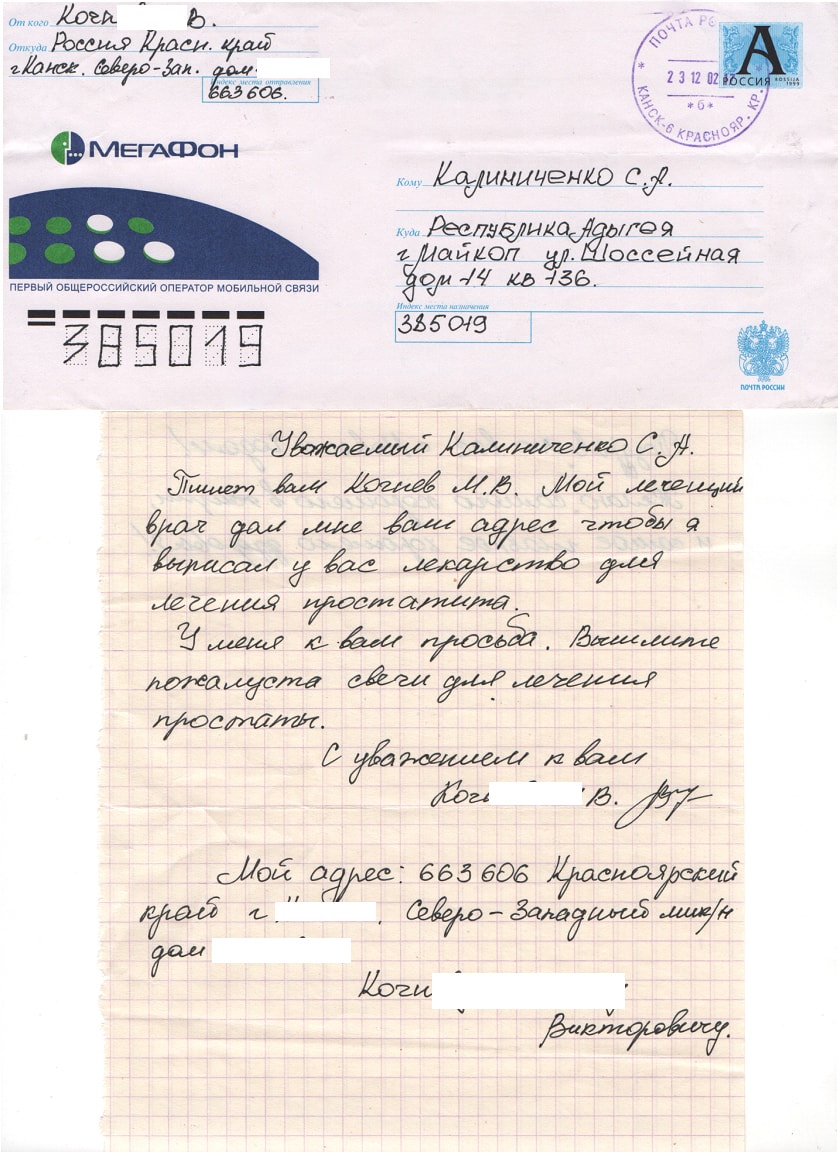 От кого Кочн В.
Откуда Россия Красн. край
г Канск. Северо-Зап. дом-
Индекс места отправления
663606.
ПОЧТА РО
23 12 02
*б*
КАНСК-6 КРАСНОЯР. КР.
А
РОССИЯ ROSSIJA
1999
МЕГАФОН
ПЕРВЫЙ ОБЩЕРОССИЙСКИЙ ОПЕРАТОР МОБИЛЬНОЙ СВЯЗИ
385019
Кому Калиниченко С.А.
Куда Республика Адыгея
г Майкоп ул. Шоссейная
дом-14 кв-136.
Индекс места назначения
385019
ПОЧТА РОССИИ
Уважаемый Калиниченко С.А.
Пишет вам М.В. Мой леченций
врач дал мне ваш адрес чтобы я
выписал у вас лекарство для
лечения простатита.
У меня к вам просьба. Вышлите
пожалуста свечи для лечения
простаты.
С уважением к вам
Коч В.
Мой адрес: 663606 Красноярский
край г . Северо-Западный мик/н
дом
Кочн
Викторовичу.